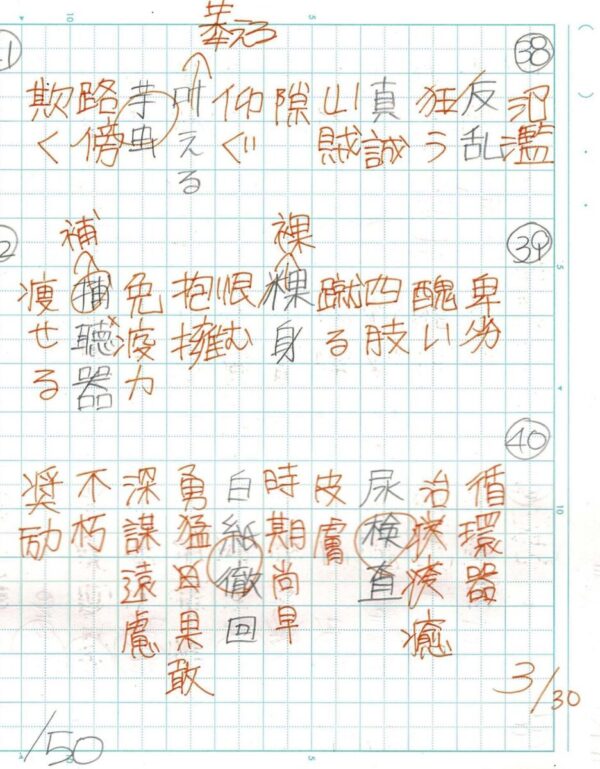 ㊳
氾濫
反乱
狂う
真誠
山賊
隙
仰ぐ
叶える
1
芋虫
路傍
欺く
㊴
卑劣
醜い
四肢
蹴る
裸
粿身
恨む
抱擁
2
免疫力
補
捕聴器
痩せる
㊵
循環器
治癒
尿検直
皮膚
時期尚早
白紙徹回
勇猛果敢
深謀遠慮
不朽
奨励
3/30
/50